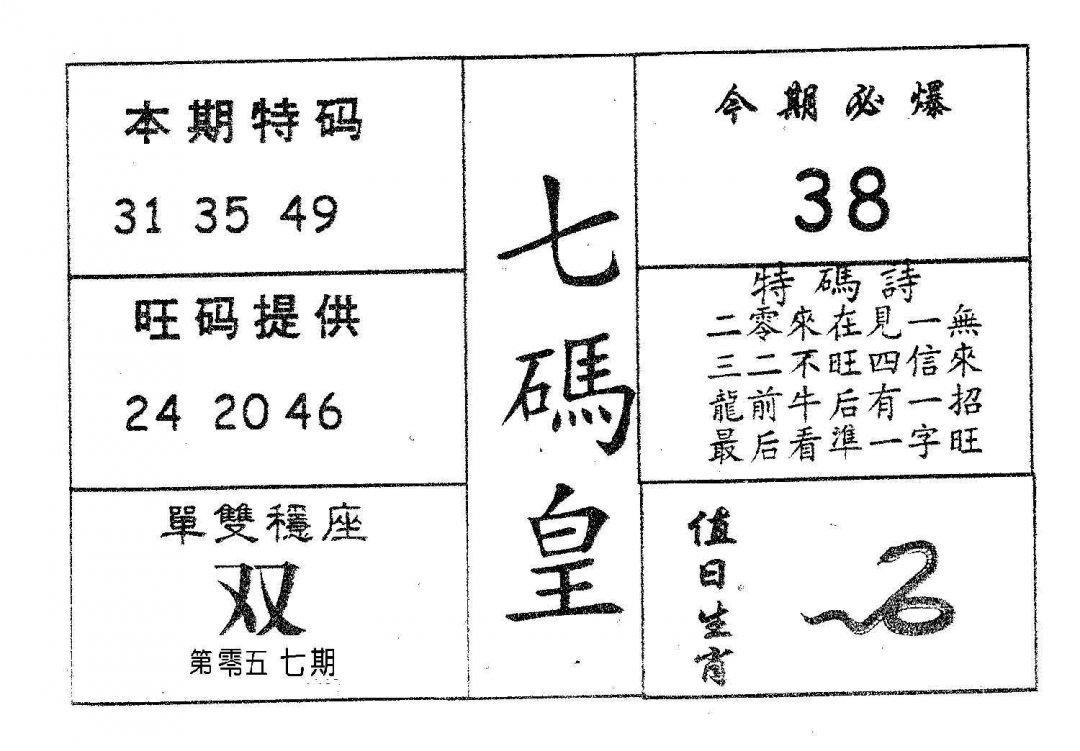 本期特码
31 35 49
旺码提供
24 20 46
單雙穩座
双
第零五七期
七碼皇
今期必爆
38
特碼詩
二零來在見一無
三二不旺四信來
龍前牛后有一招
最后看準一字旺
值日生肖